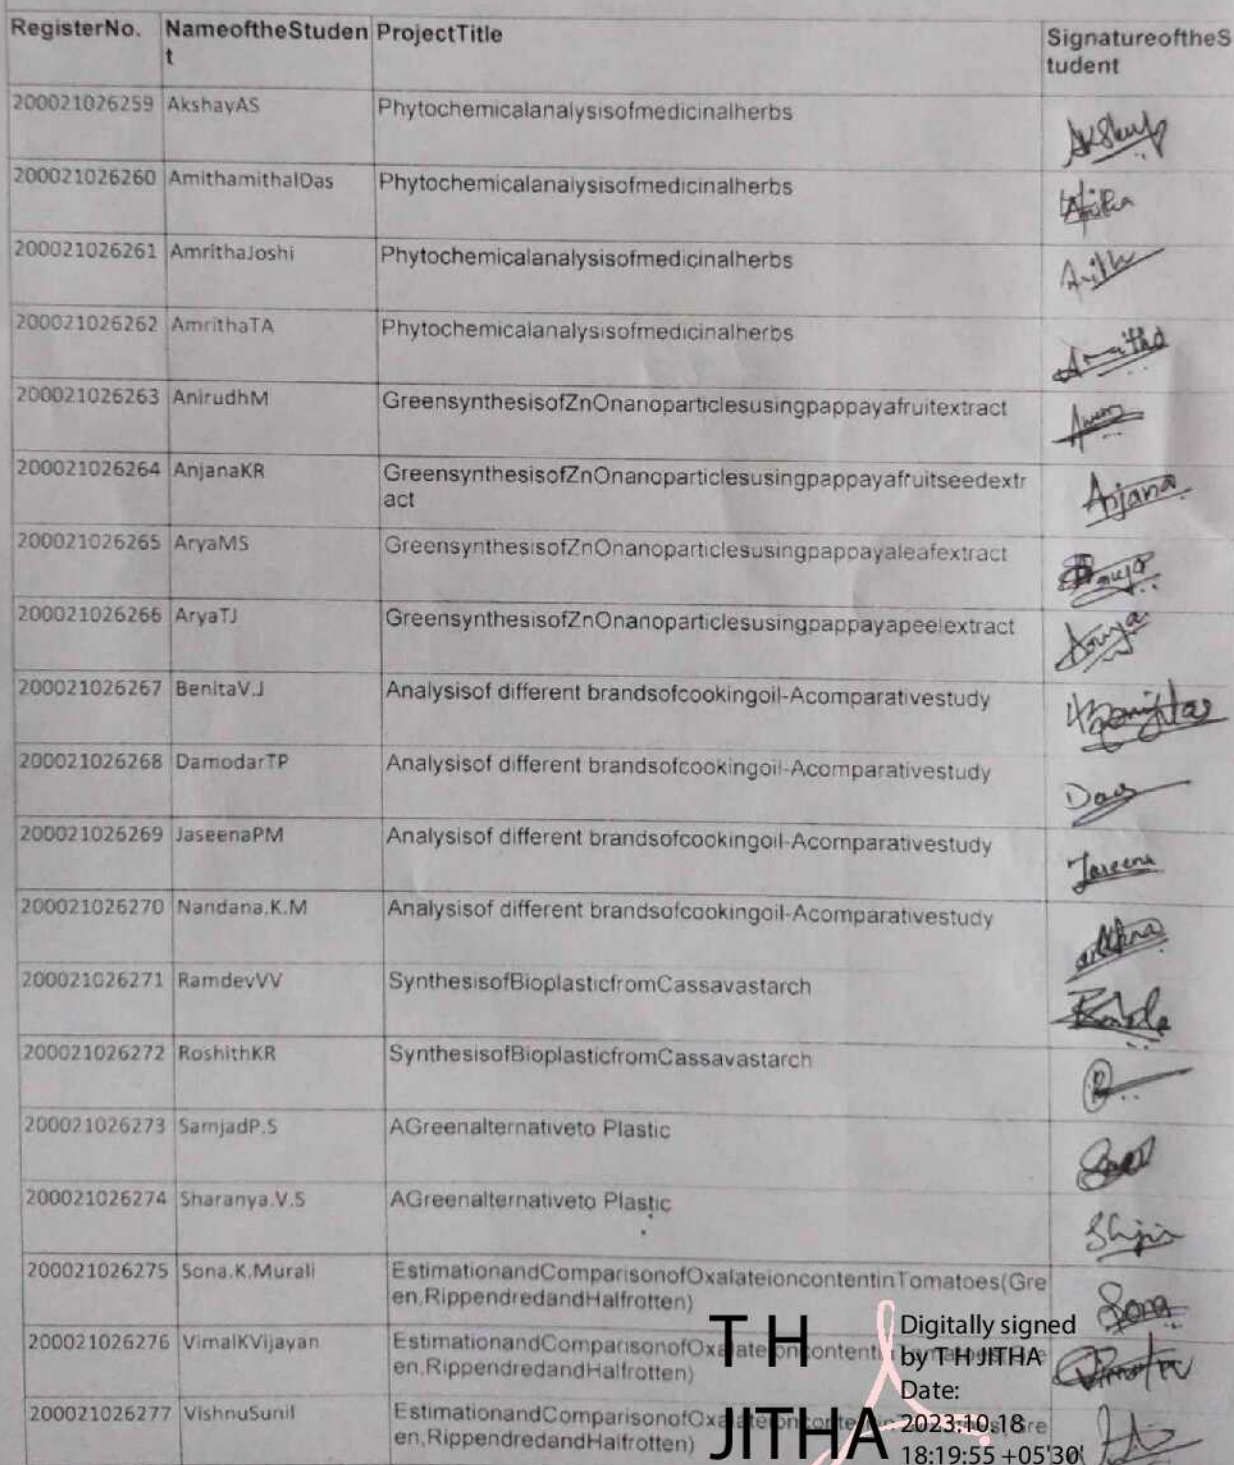 RegisterNo. NameoftheStuden ProjectTitle SignatureoftheS
t tudent
200021026259 AkshayAS Phytochemicalanalysisofmedicinalherbs
200021026260 AmithamithalDas Phytochemicalanalysisofmedicinalherbs
200021026261 AmrithaJoshi Phytochemicalanalysisofmedicinalherbs
200021026262 AmrithaTA Phytochemicalanalysisofmedicinalherbs Amritha
200021026263 AnirudhM GreensynthesisofZnOnanoparticlesusingpappayafruitextract
200021026264 AnjanaKR GreensynthesisofZnOnanoparticlesusingpappayafruitseedextr Anjana
act
200021026265 AryaMS GreensynthesisofZnOnanoparticlesusingpappayaleafextract
200021026266 AryaTJ GreensynthesisofZnOnanoparticlesusingpappayapeelextract
200021026267 BenitaV.J Analysisof different brandsofcookingoil-Acomparativestudy
200021026268 DamodarTP Analysisof different brandsofcookingoil-Acomparativestudy
200021026269 JaseenaPM Analysisof different brandsofcookingoil-Acomparativestudy Jaseena
200021026270 Nandana.K.M Analysisof different brandsofcookingoil-Acomparativestudy
200021026271 RamdevVV SynthesisofBioplasticfromCassavastarch
200021026272 RoshithKR SynthesisofBioplasticfromCassavastarch
200021026273 SamjadP.S AGreenalternativeto Plastic
200021026274 Sharanya.V.S AGreenalternativeto Plastic
200021026275 Sona.K.Murali EstimationandComparisonofOxalateioncontentinTomatoes(Gre Sona
en,RippendredandHalfrotten)
200021026276 VimalKVijayan EstimationandComparisonofOxalateioncontentinTomatoes(Gre
en,RippendredandHalfrotten)
200021026277 VishnuSunil EstimationandComparisonofOxalateioncontentinTomatoes(Gre
en,RippendredandHalfrotten)
T H
JITHA
Digitally signed
by T H JITHA
Date:
2023.10.18
18:19:55 +05'30'